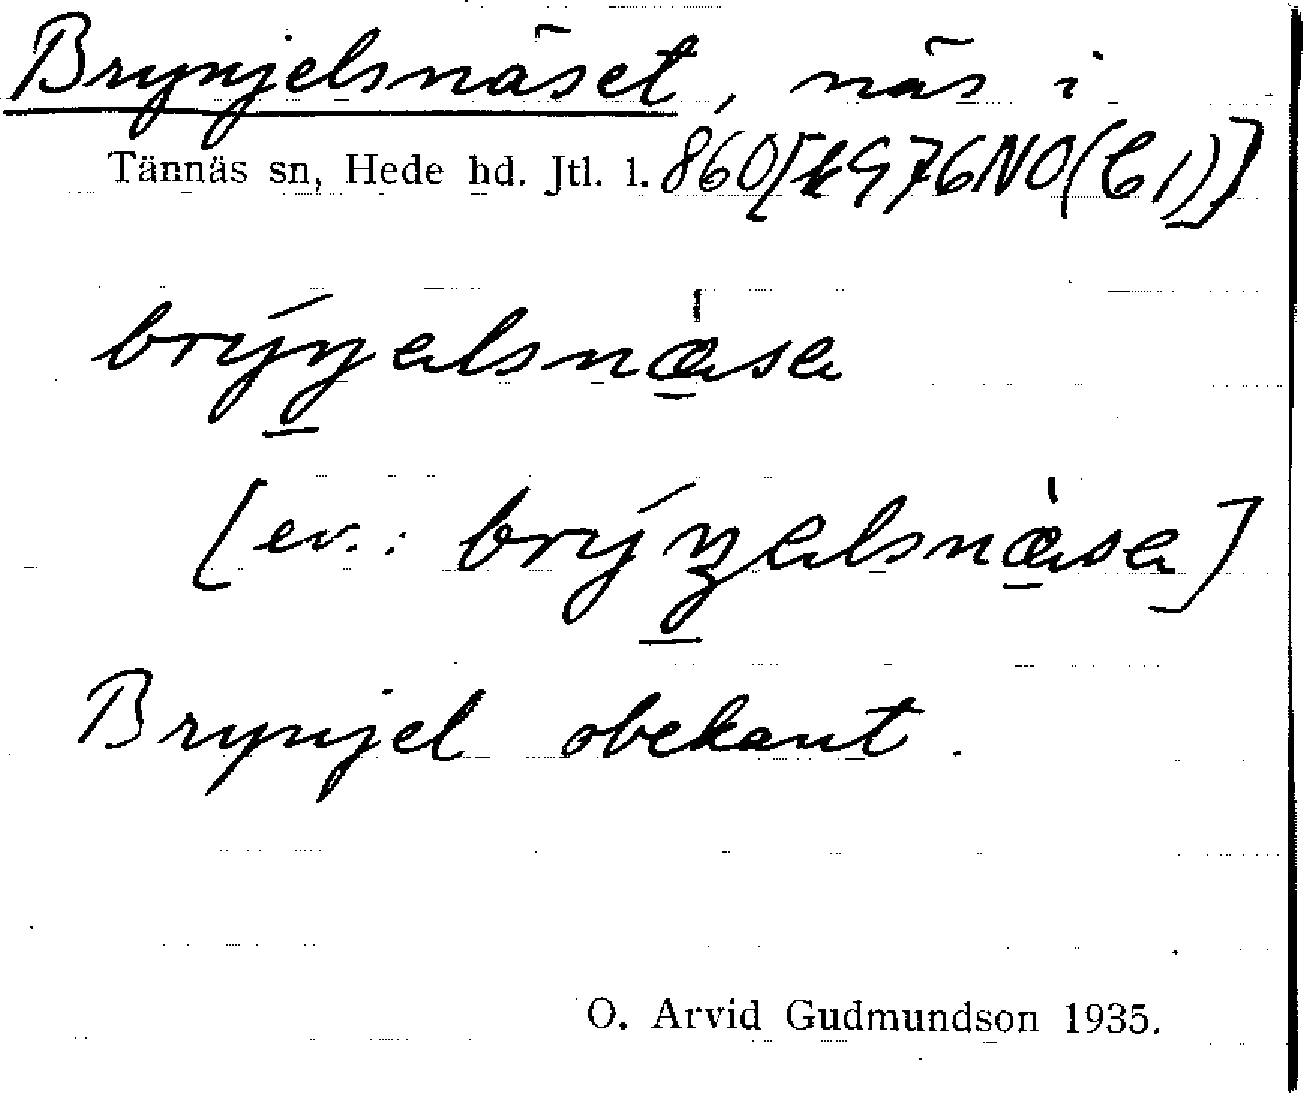 Brynjelsnäset, näs i
Tännäs sn, Hede hd. Jtl. l. 860[kG76NO(C1)]
brýŋəlsnæ̀sa
[ev.: brýɲəlsnæ̀sa]
Brynjel obekant.
O. Arvid Gudmundson 1935.